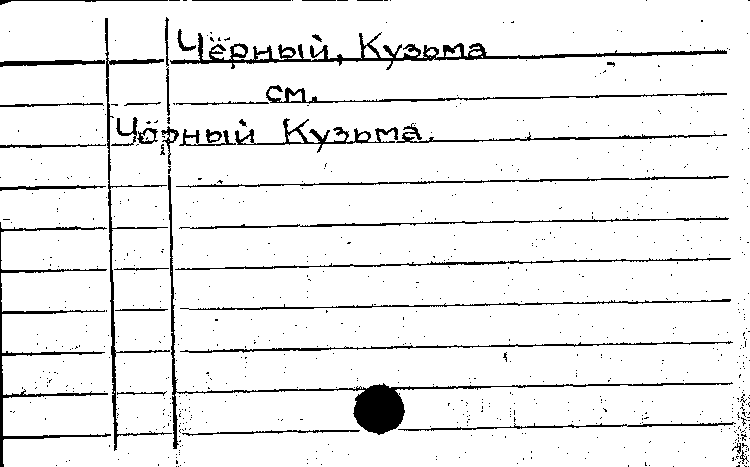 Чёрный, Кузьма
см.
Чорный Кузьма.